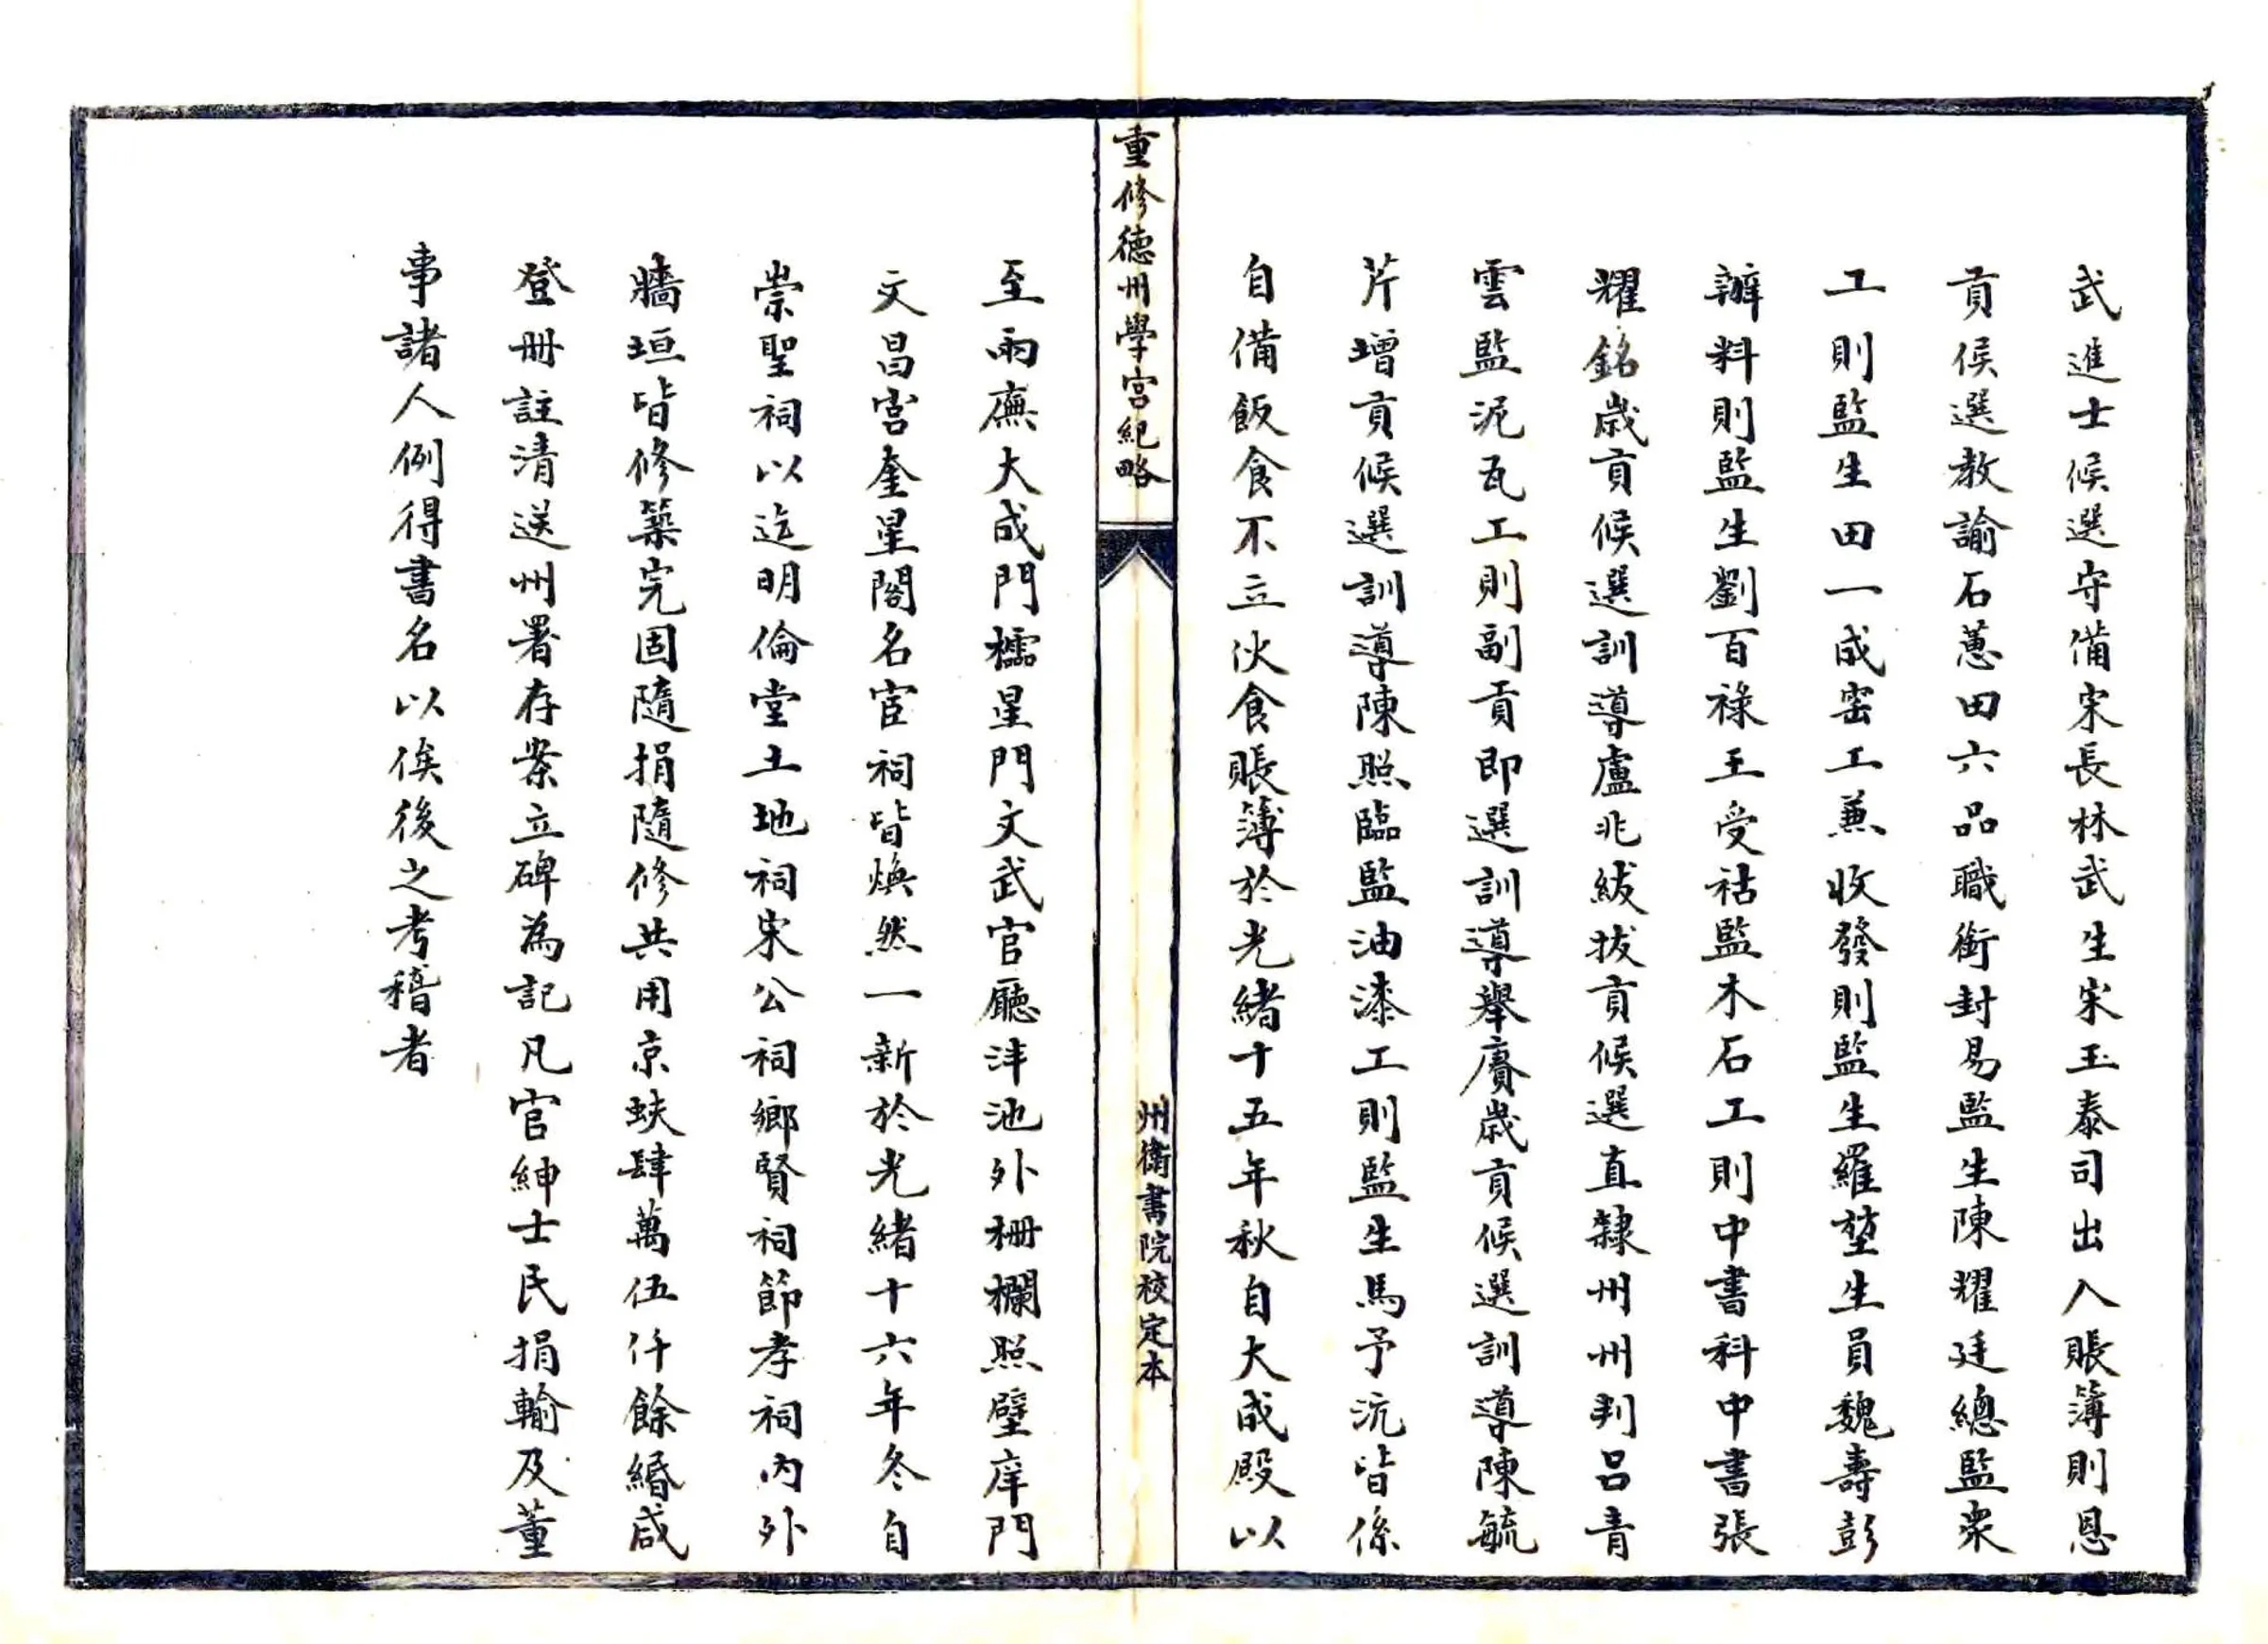 武進士候選守備宋長林武生宋玉泰司出入賬簿則恩
貢候選教諭石蕙田六品職銜封易監生陳耀廷總監衆
工則監生田一成窑工兼收發則監生羅堃生員魏壽彭
辦料則監生劉百祿王受祜監木石工則中書科中書張
耀銘歲貢候選訓導盧兆紱拔貢候選直隸州州判呂青
雲監泥瓦工則副貢即選訓導舉廩歲貢候選訓導陳毓
芹增貢候選訓導陳照臨監油漆工則監生馬予沆皆係
自備飯食不立伙食賬簿於光緒十五年秋自大成殿以
重修德州學宮紀略
州衛書院校定本
至兩廡大成門櫺星門文武官廳泮池外柵欄照壁庠門
文昌宮奎星閣名宦祠皆煥然一新於光緒十六年冬自
崇聖祠以迄明倫堂土地祠宋公祠鄉賢祠節孝祠內外
牆垣皆修築完固隨捐隨修共用京蚨肆萬伍仟餘緡咸
登冊註清送州署存案立碑為記凡官紳士民捐輸及董
事諸人例得書名以俟後之考稽者